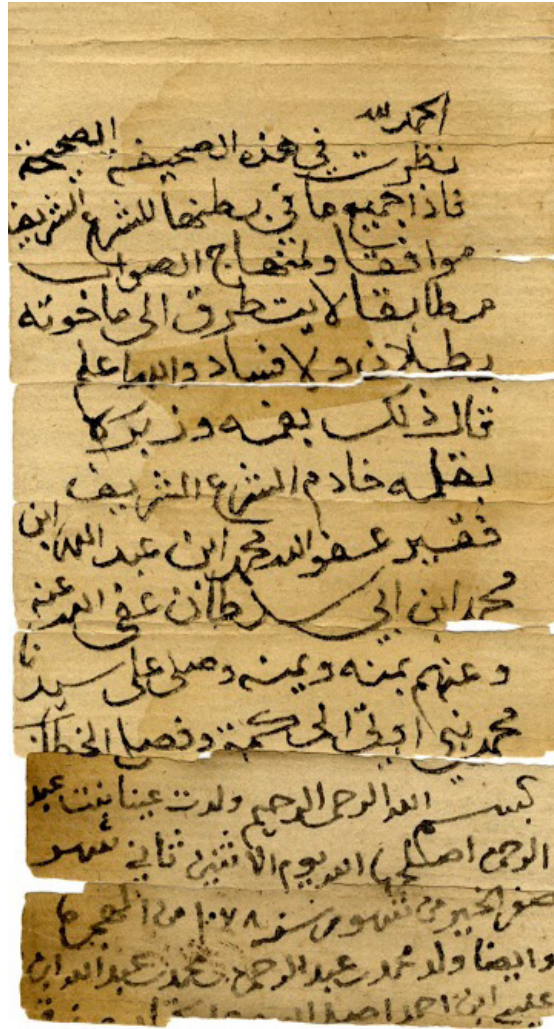 الحمد لله
نظرت في هذه الصحيفة الصحيحة
فاذا جميع ما في بطنها للشرع الشريف
موافقا ولمنهاج الصواب
مطابقا لا يتطرق الى ما حوته
بطلان ولا فساد والله اعلم
قال ذلك بفمه وزبره
بقلمه خادم الشرع الشريف
فقير عفو الله محمد ابن عبد الله ابن
محمد ابن ابي سلطان عفى الله عنه
وعنهم بمنه ويمنه وصلى على سيدنا
محمد نبي اوتي الحكمة وفصل الخطاب
بسم الله الرحمن الرحيم ولدت عينا بنت عبد
الرحمن اصلحها الله يوم الاثنين ثاني شهر
صفر الخير من شهور سنة ١٠٧٨ من الهجرة
وايضا ولد محمد بن عبد الرحمن بن محمد بن عبد الله ابن
ابن احمد